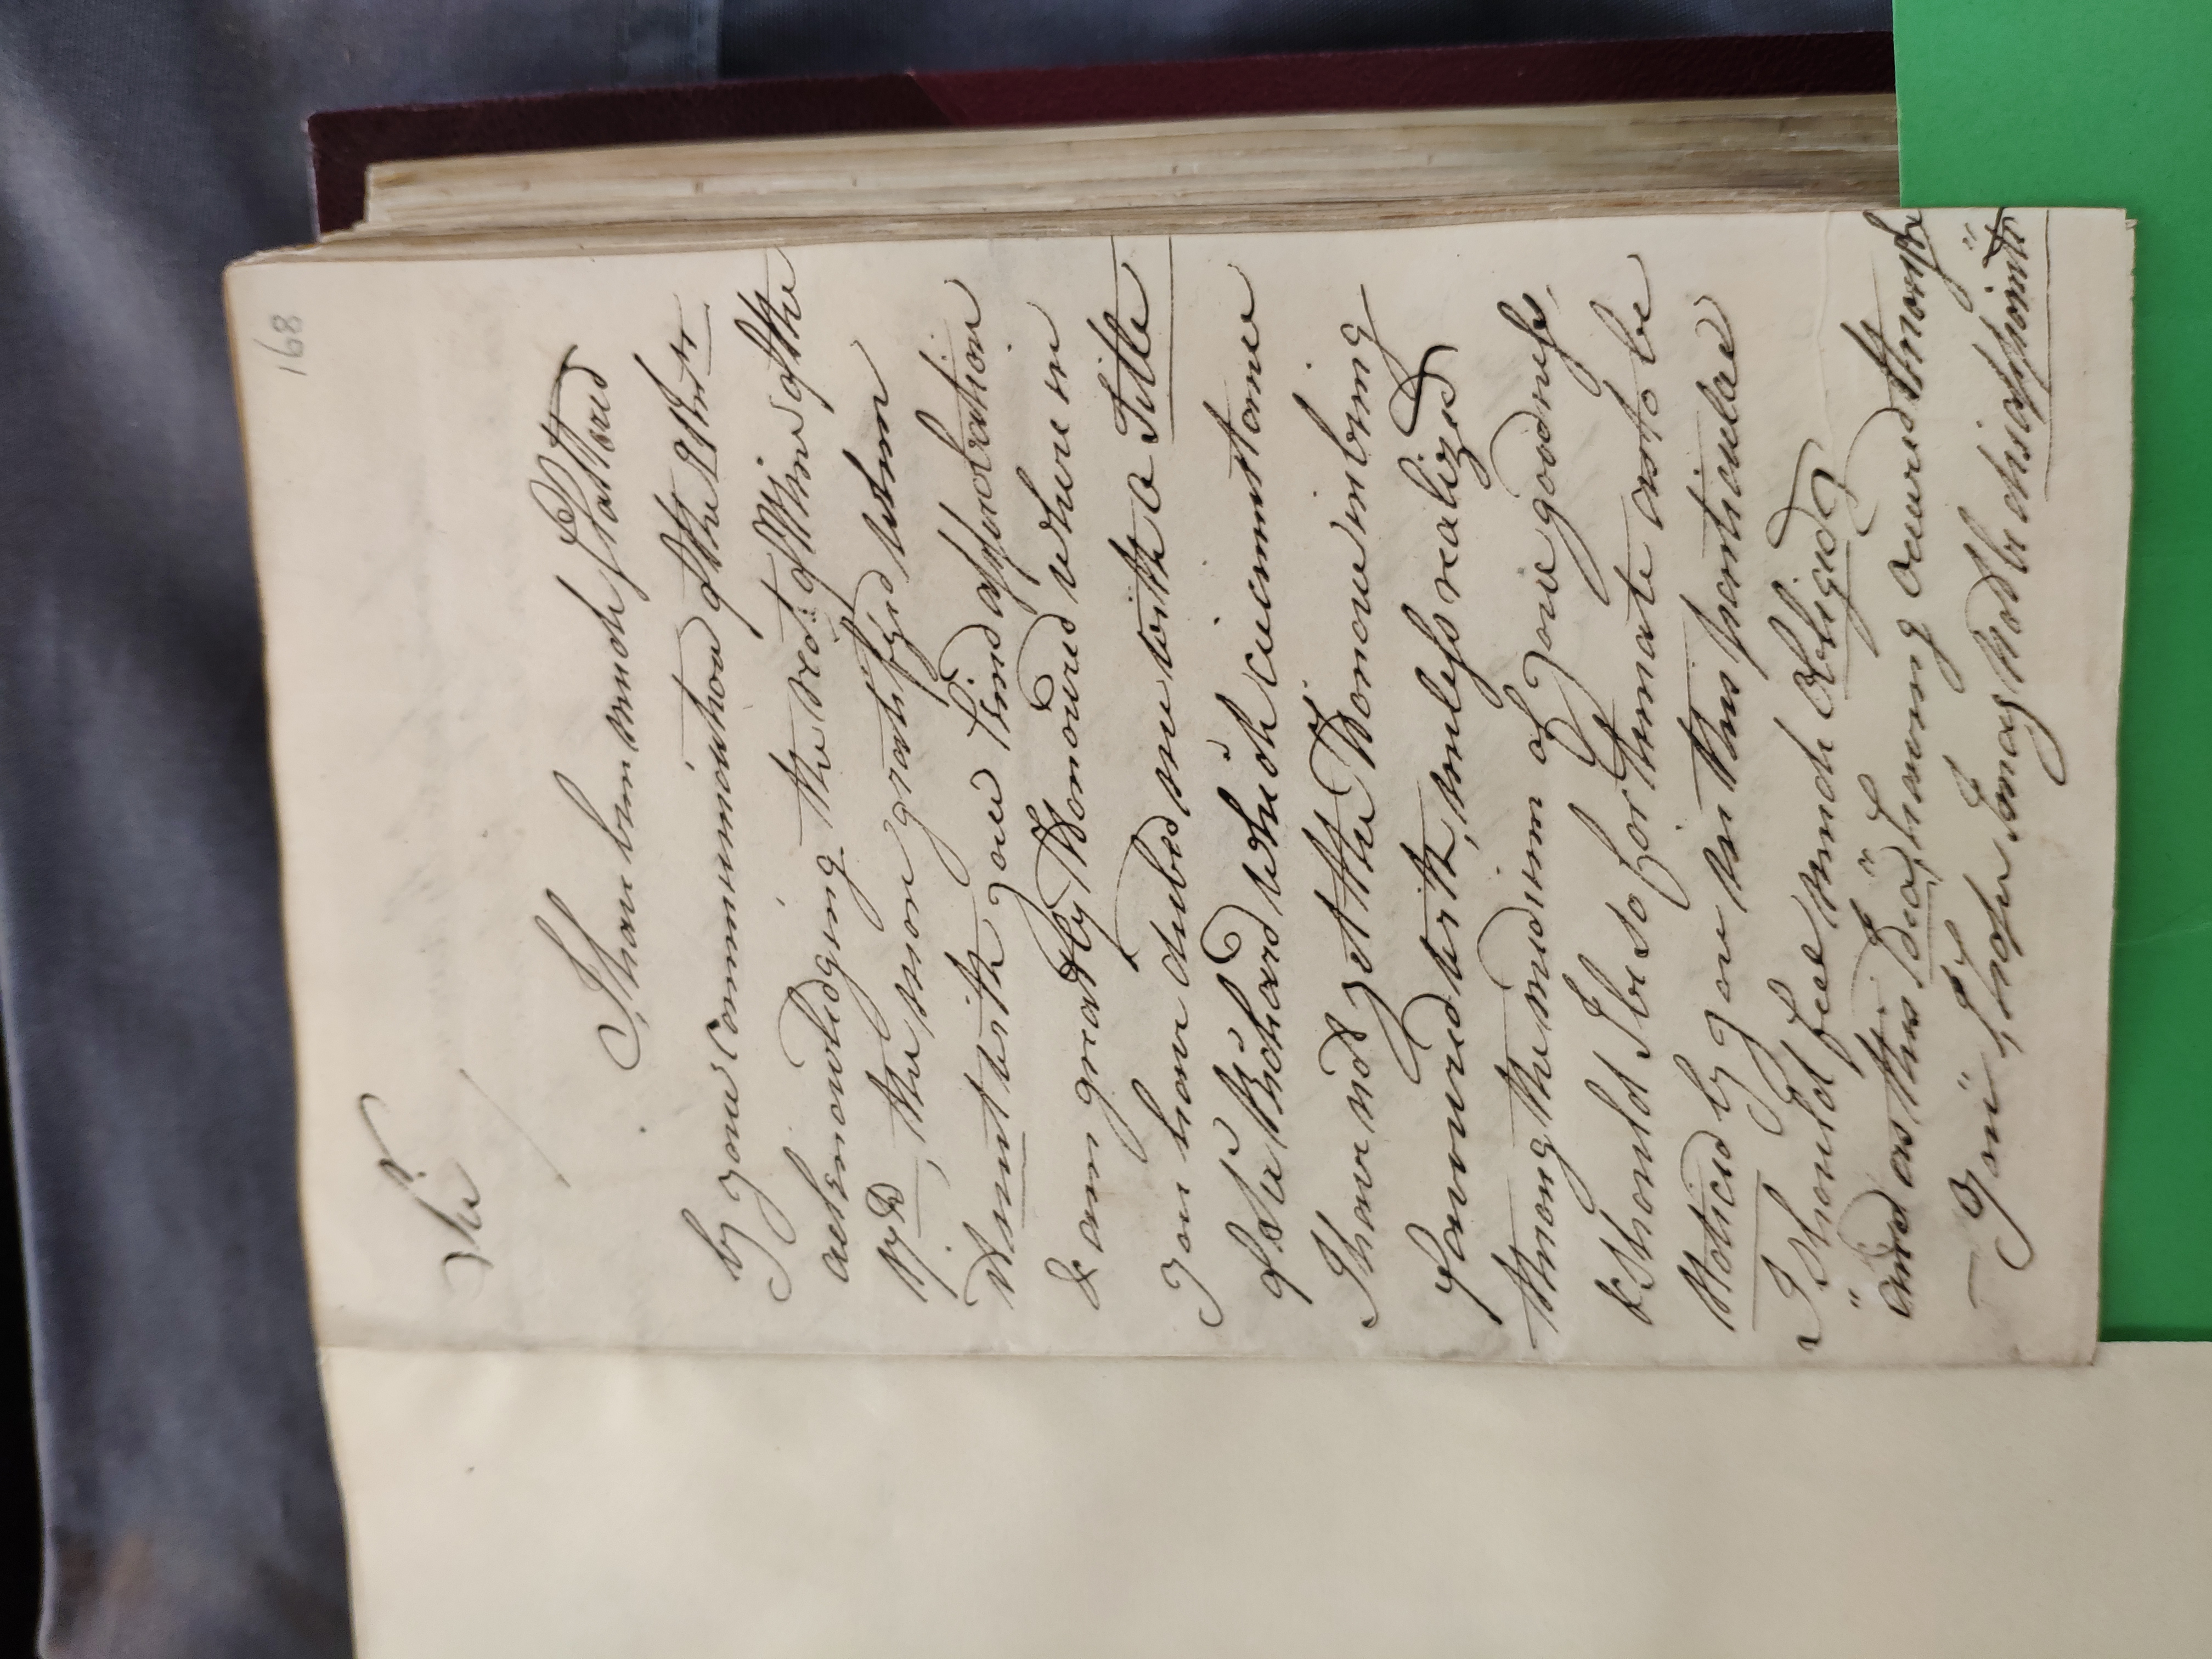 168
Sir
I have been much flattered
by your communication of the 29 Inst.
acknowledging the rect. of Mine of the
17th, the more gratifyed when
I meet with your kind approbation
& am greatly Honoured where in
you have dubed me with a Title
of Sir Richard which circumstance
I have not yet the Honour in being
favoured with, unless realized
through the medium of your goodness.
& should I be so fortunate as to be
Noticed by you in this particular
I should feel much Obliged,
and as this Idea having occured through
You, I hope I may not be disappointd